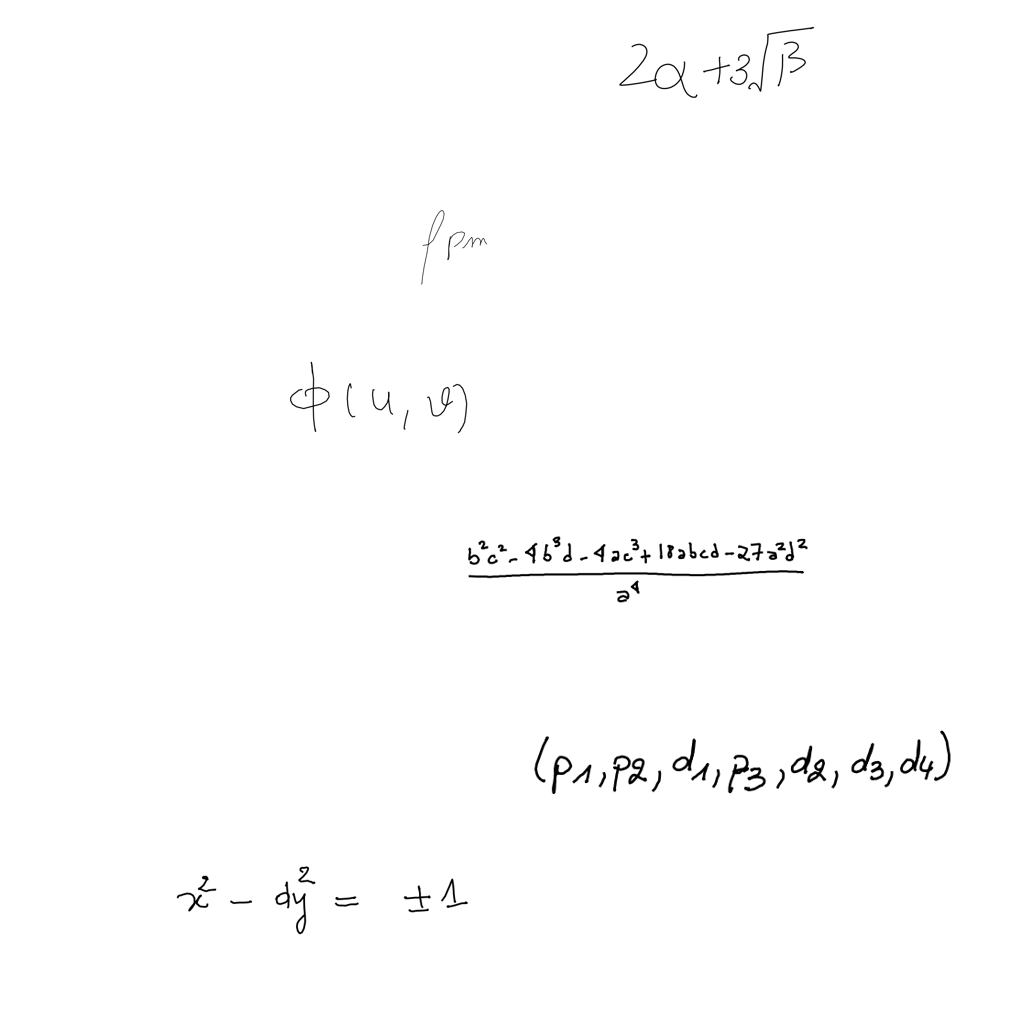 2α+3√β
ρpm
ϕ(u,v)
(b²c²-4b³d-4ac³+18abcd-27a²d²)/a⁴
(p1,p2,d1,p3,d2,d3,d4)
x²-dy²=±1